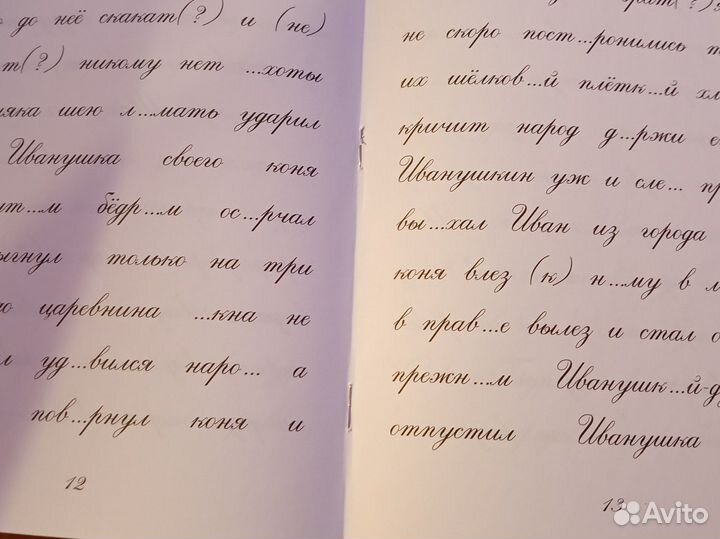 до неё скакат(?) и (не)
никому нет ...хоты
шею л...мать ударил
Иванушка своего коня
бёдр...м ос...рчал
только на три
царевнина ...кна не
уд...вился наро... а
пов...рнул коня и
12
не скоро пост...ронились
их шёлков...й плётк...й
кричит народ д...ржи
Иванушкин уж и сле...
вы...хал Иван из города
коня влез (к) н...му в
в прав...е вылез и стал
прежн...м Иванушк...й-
отпустил Иванушка
13
Avito